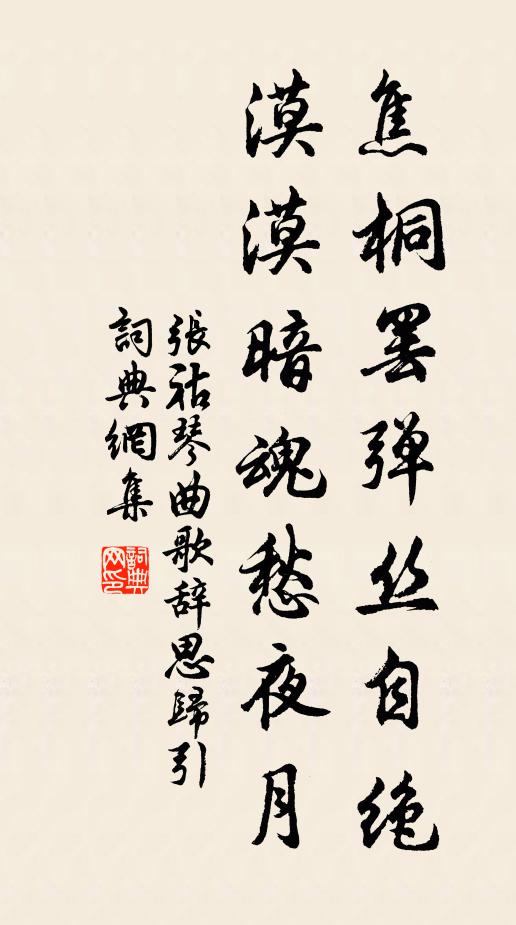 焦桐罢弹丝自绝
漠漠暗魂愁夜月
張祜琴曲歌辞思歸引
詞典網集
詞典网印